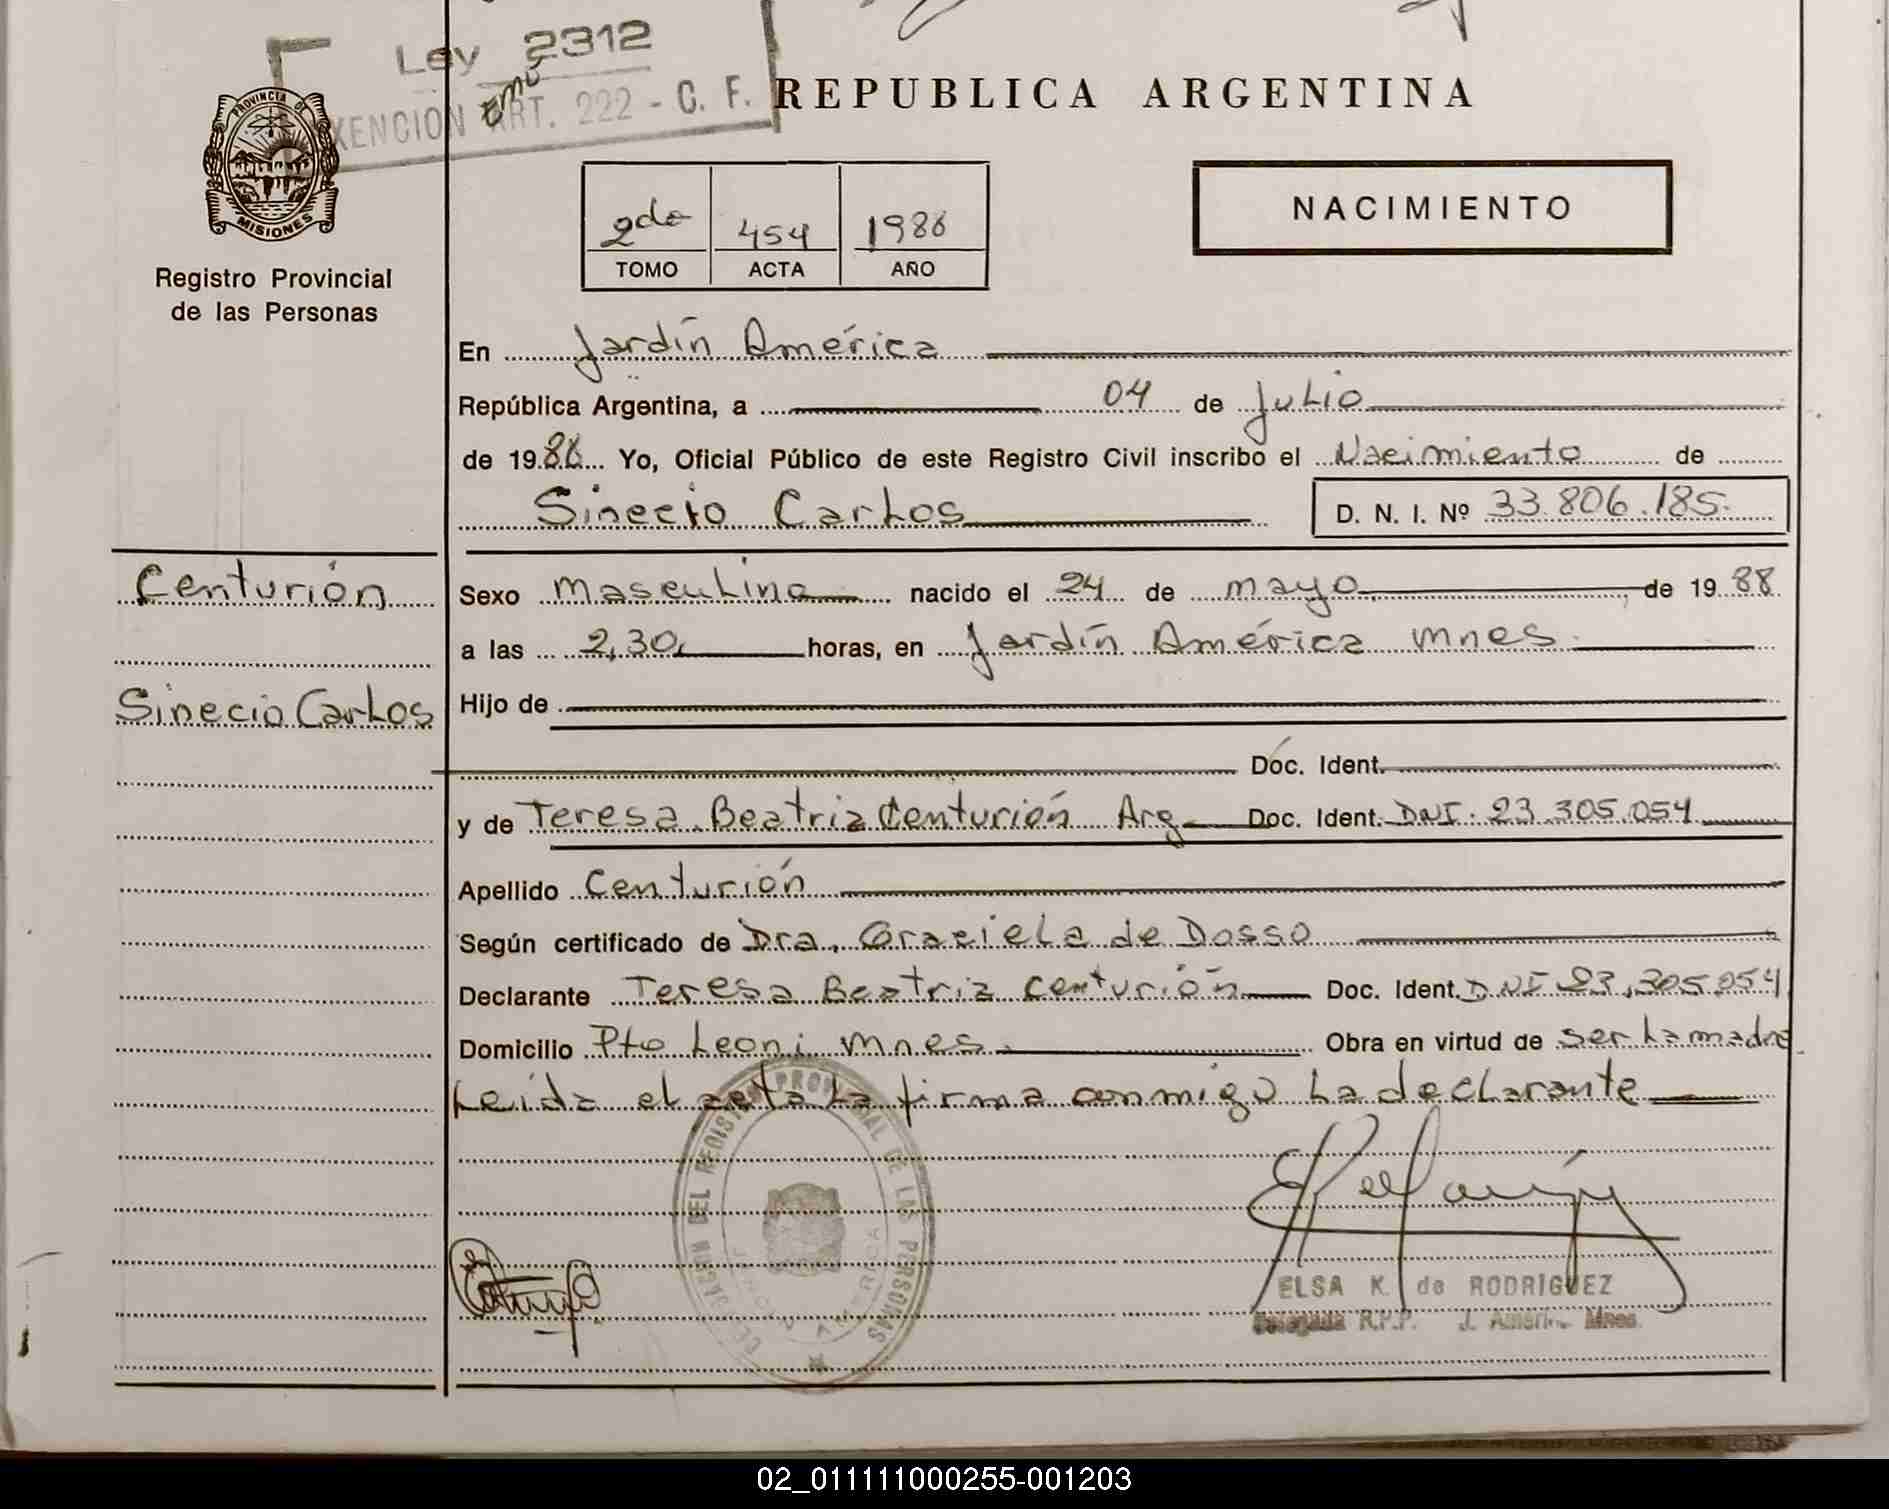 Ley 2312
EXENCION ART. 222 - C. F.
REPUBLICA ARGENTINA
PROVINCIA DE
MISIONES
Registro Provincial
de las Personas
2do 454 1988
TOMO ACTA AÑO
NACIMIENTO
En Jardín América
República Argentina, a 04 de Julio
de 1988 Yo, Oficial Público de este Registro Civil inscribo el Nacimiento de
Sinecio Carlos D. N. I. Nº 33.806.185.
Centurión
Sinecio Carlos
Sexo masculino nacido el 24 de mayo de 1988
a las 2,30 horas, en Jardín América mnes.
Hijo de
Doc. Ident.
y de Teresa Beatriz Centurión Arg. Doc. Ident. DNI. 23.305.054
Apellido Centurión
Según certificado de Dra. Graciela de Dosso
Declarante Teresa Beatriz Centurión Doc. Ident. DNI 23.305.054
Domicilio Pto Leoni mnes. Obra en virtud de ser la madre
Leída el acta la firma conmigo la declarante
DELEGACION DEL REGISTRO PROVINCIAL DE LAS PERSONAS
JARDIN AMERICA
ELSA K. de RODRIGUEZ
Delegada R.P.P. J. América Mnes.
02_011111000255-001203